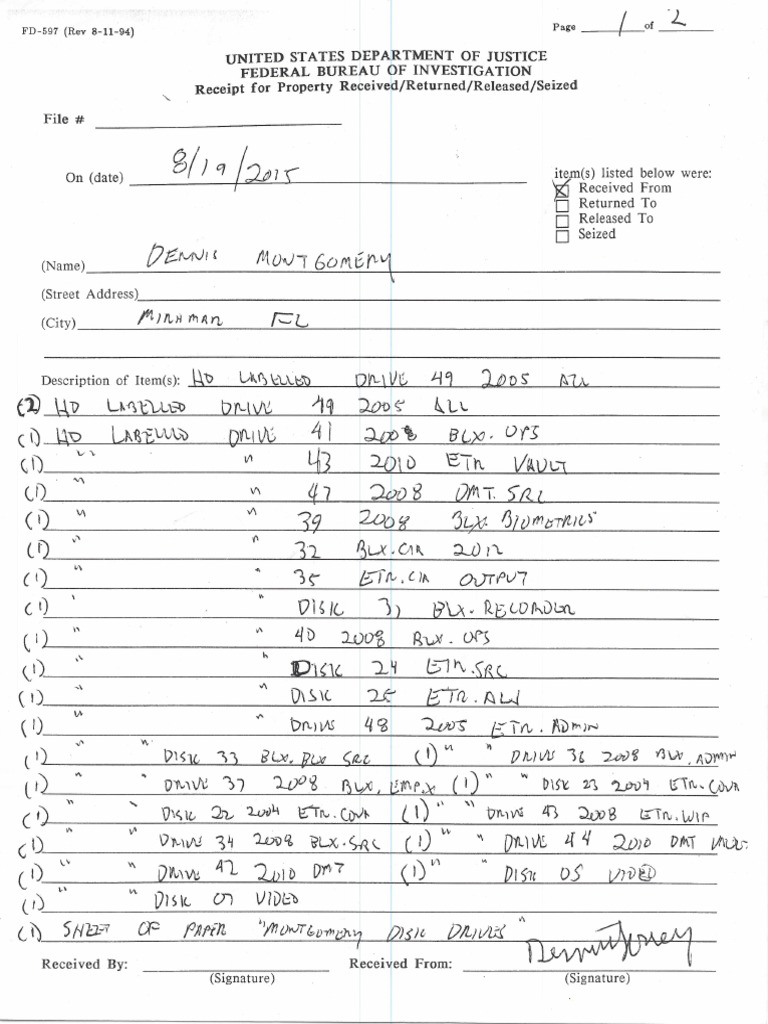 FD-597 (Rev 8-11-94)
Page 1 of 2
UNITED STATES DEPARTMENT OF JUSTICE
FEDERAL BUREAU OF INVESTIGATION
Receipt for Property Received/Returned/Released/Seized
File #
On (date) 8/19/2015
item(s) listed below were:
Received From
Returned To
Released To
Seized
(Name) DENNIS MONTGOMERY
(Street Address)
(City) MIRAMAR FL
Description of Item(s): HD LABELLED DRIVE 49 2005 ALL
(2) HD LABELLED DRIVE 49 2005 ALL
(1) HD LABELLED DRIVE 41 2008 BLX. OPS
(1) " " 43 2010 ETR VAULT
(1) " " 47 2008 DMT. SRC
(1) " " 39 2008 BLX. BIOMETRICS
(1) " " 32 BLX.CIA 2012
(1) " " 35 ETR.CIA OUTPUT
(1) ' " DISK 31 BLX. RECORDER
(1) " " 40 2008 BLX. OPS
(1) " " DISK 24 ETR.SRC
(1) " " DISK 25 ETR.
(1) " " DRIVE 48 2005 ETR. ADMIN
(1) " " DISK 33 BLX. BLX SRC (1) " " DRIVE 36 2008 BLX. ADMIN
(1) " " DRIVE 37 2008 BLX, EMP.X (1) " " DISK 23 2004 ETR.COVR
(1) " " DISK 22 2004 ETR.COVR (1) " " DRIVE 43 2008 ETR.WIP
(1) " " DRIVE 34 2008 BLX.SRC (1) " " DRIVE 44 2010 DMT VAULT
(1) " " DRIVE 42 2010 DMT (1) " " DISK 05 VIDEO
(1) " " DISK 07 VIDEO
(1) SHEET OF PAPER "MONTGOMERY DISK DRIVES"
Received By: Received From:
(Signature) (Signature)